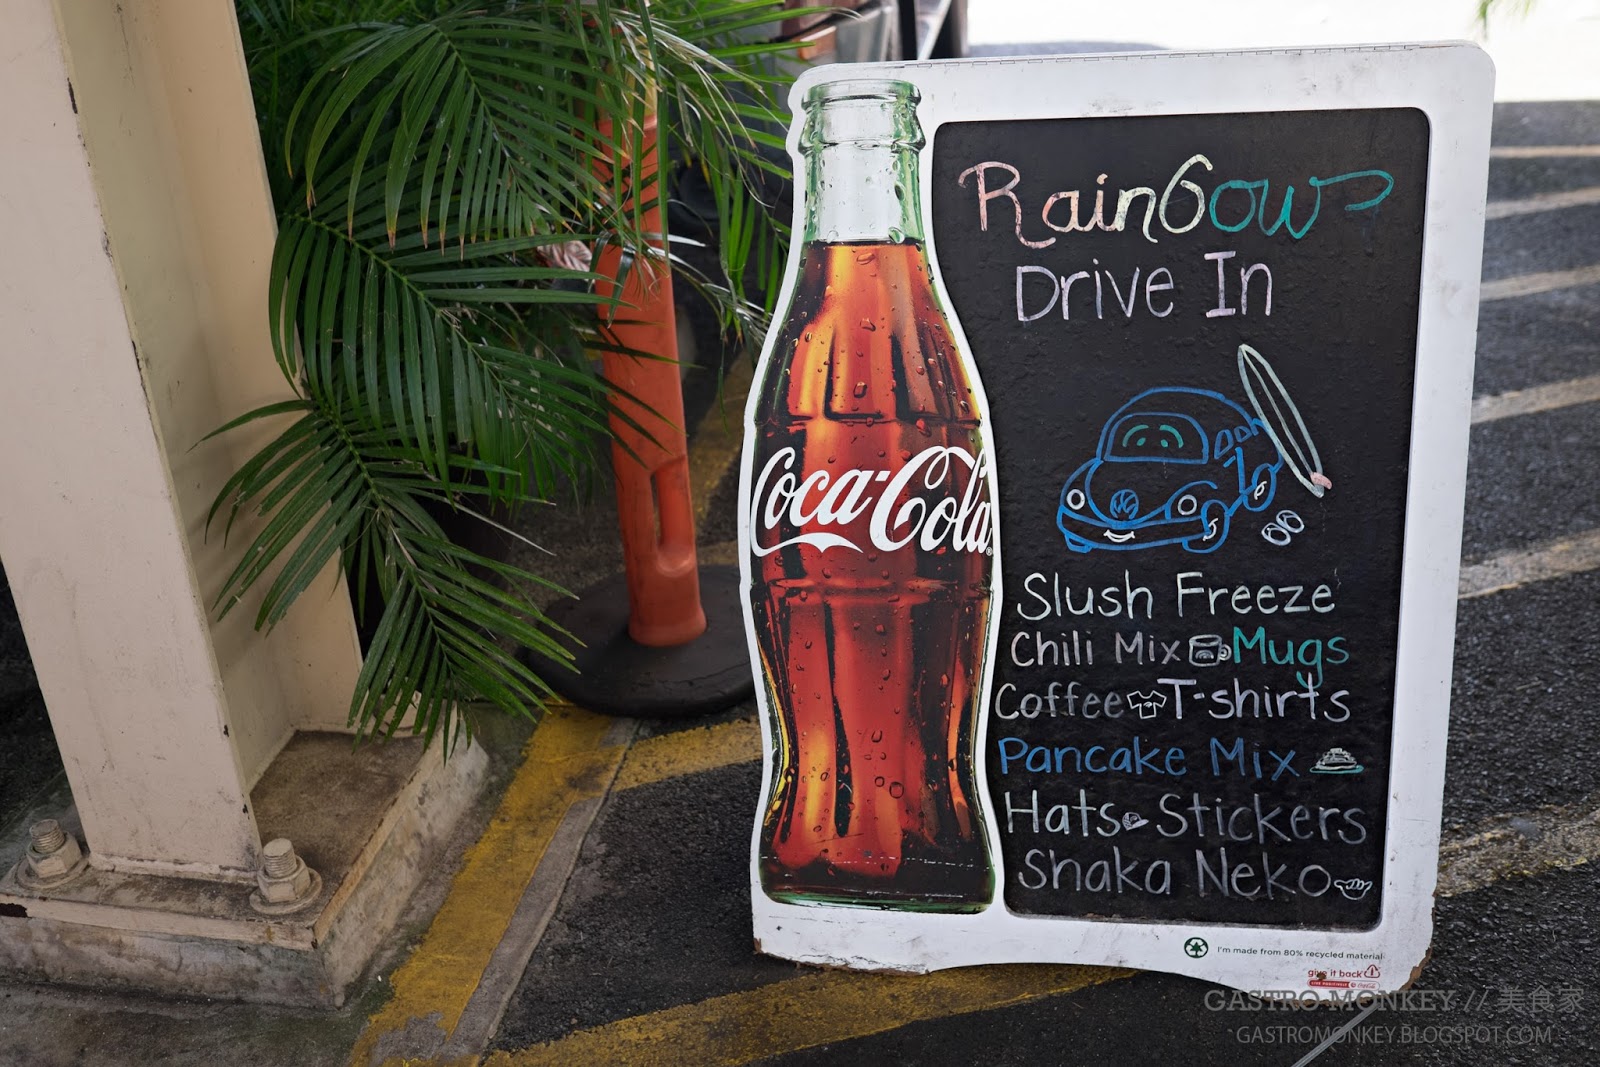 Rainbow
Drive In
Coca-Cola
Slush Freeze
Chili Mix Mugs
Coffee T-shirts
Pancake Mix
Hats Stickers
Shaka Neko
I'm made from 80% recycled material
give it back
Coca-Cola
GASTRO MONKEY // 美食家
GASTROMONKEY.BLOGSPOT.COM